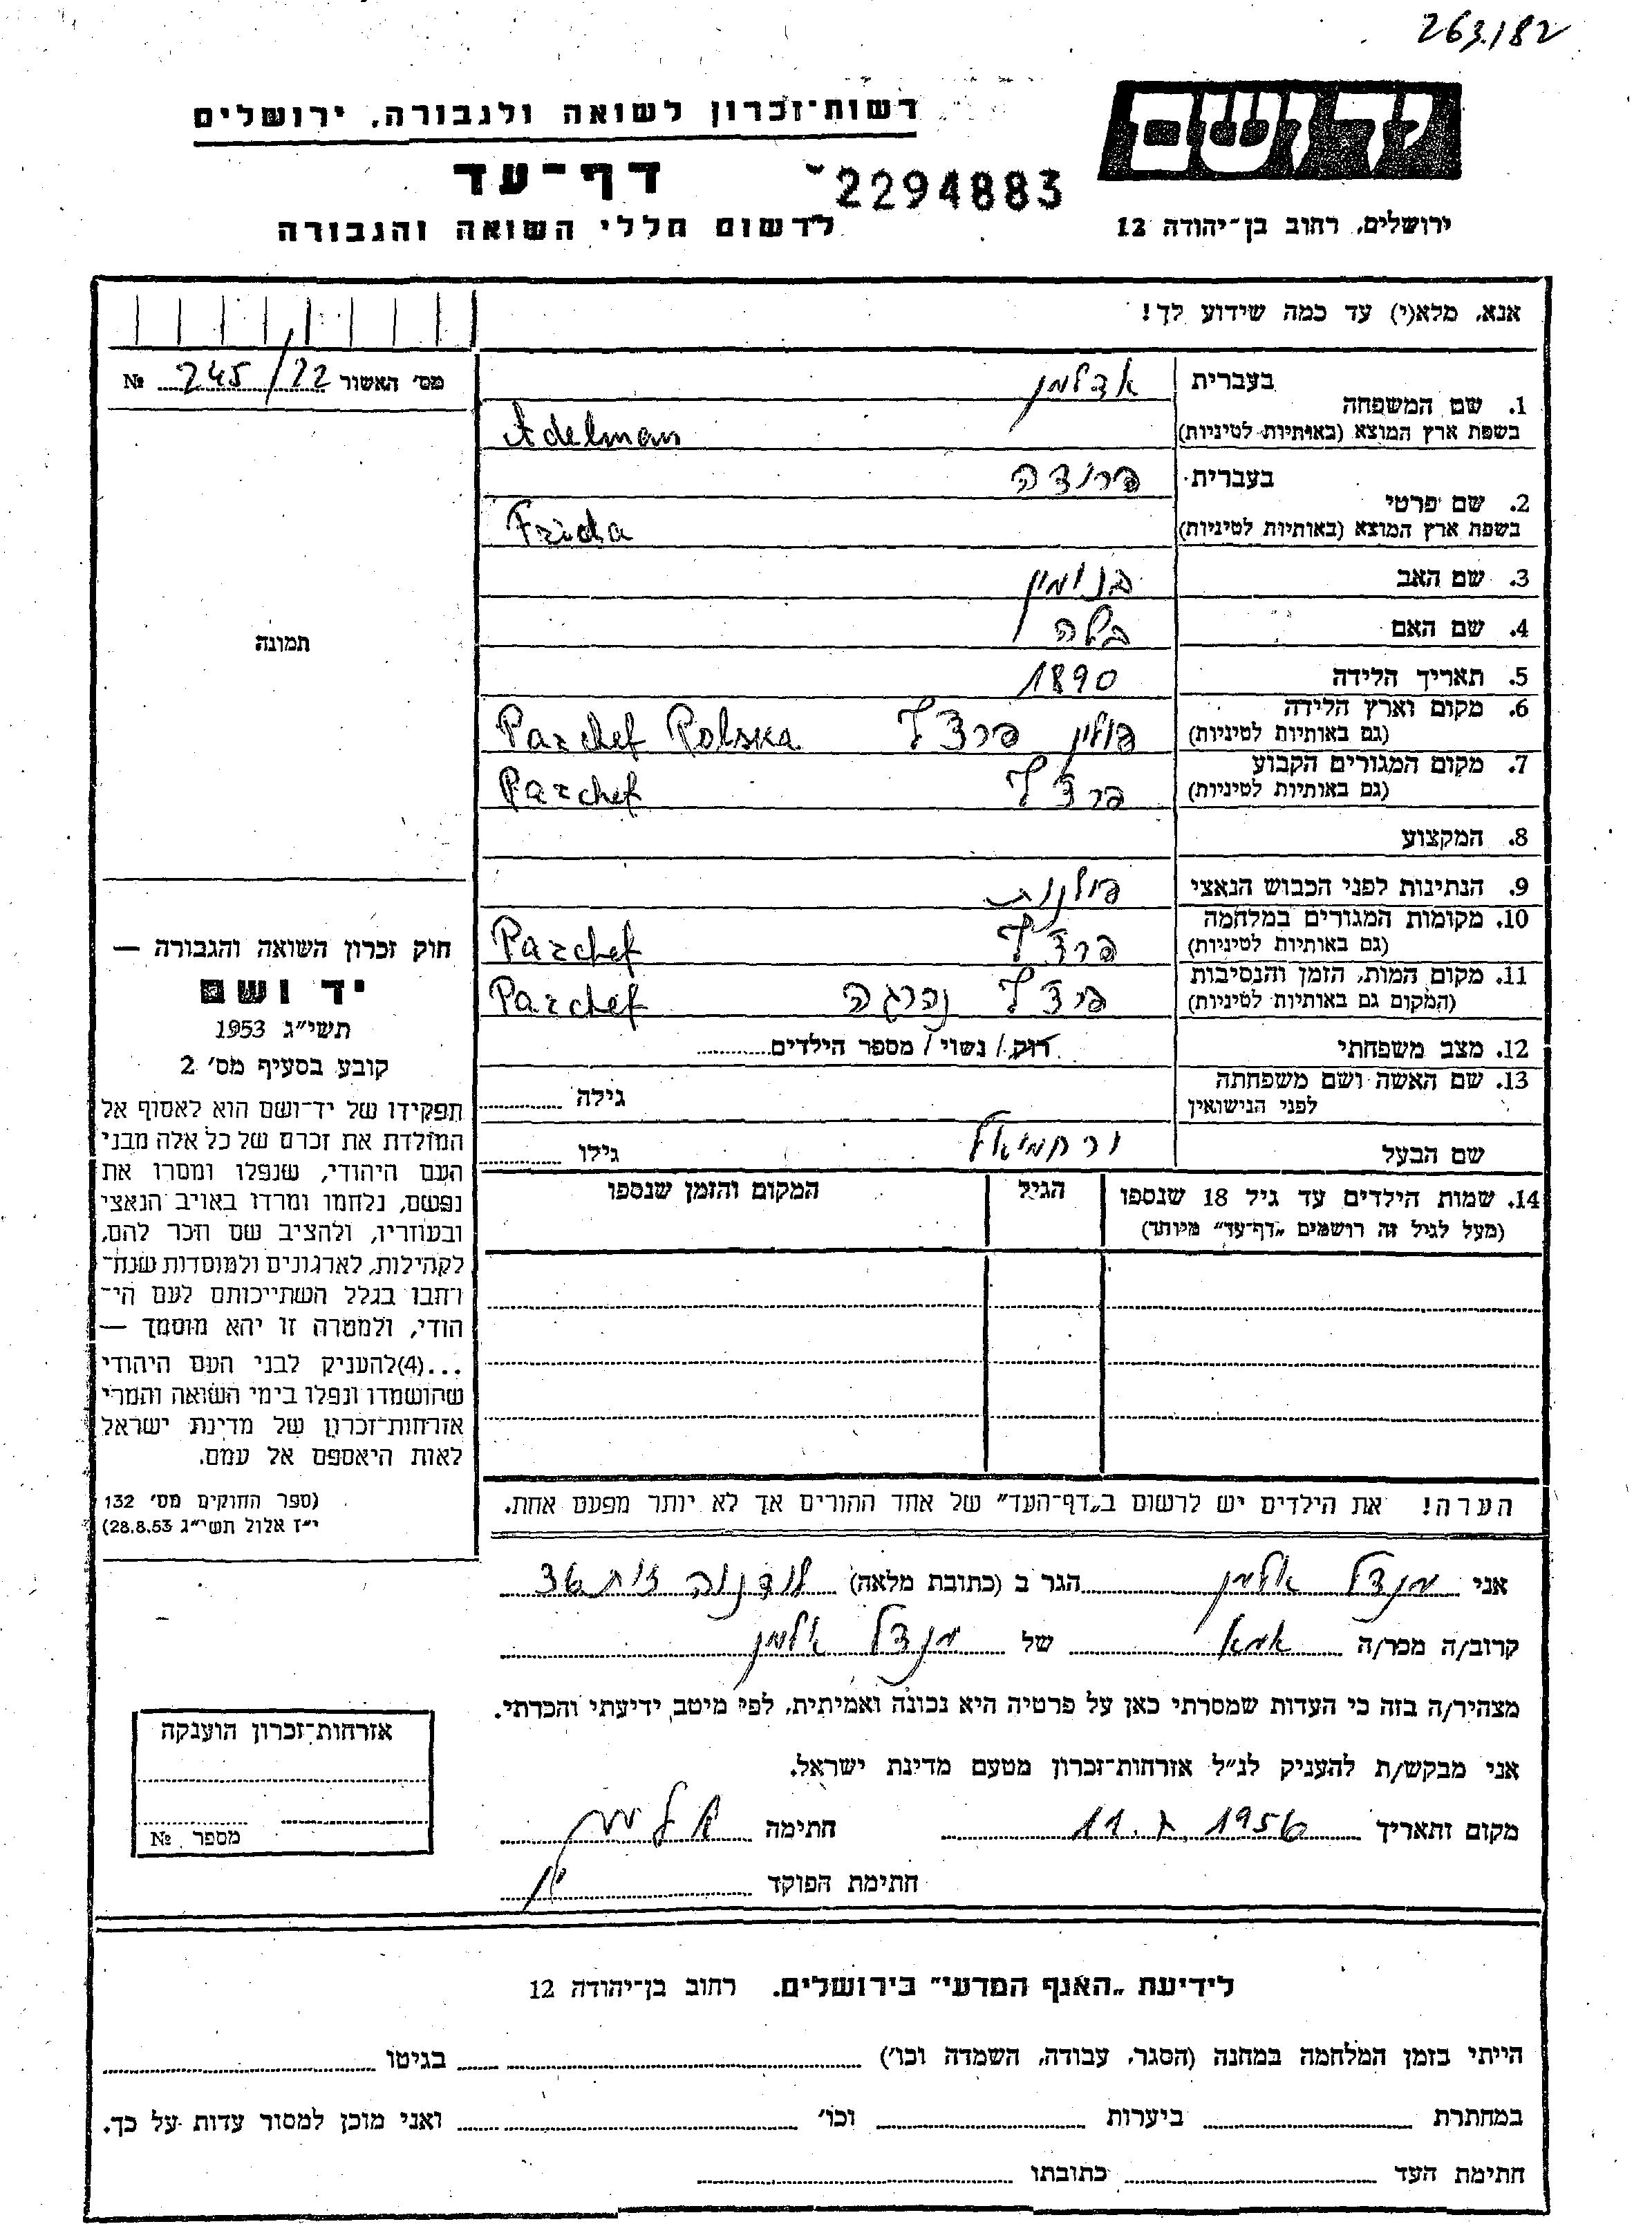 263/182
רשות־זכרון לשואה ולגבורה, ירושלים
יד ושם
דף־עד
2294883
לרשום חללי השואה והגבורה
ירושלים, רחוב בן־יהודה 12
אנא, מלא(י) עד כמה שידוע לך!
מס׳ האשור 245/22 №
1. שם המשפחה
בעברית אדלמן
בשפת ארץ המוצא (באותיות לטיניות) Adelman
2. שם פרטי
בעברית פרידה
בשפת ארץ המוצא (באותיות לטיניות) Frida
3. שם האב בנימין
4. שם האם בלה
5. תאריך הלידה 1890
6. מקום וארץ הלידה
(גם באותיות לטיניות) פולין פרצ׳ף Parchef Polska
7. מקום המגורים הקבוע
(גם באותיות לטיניות) פרצ׳ף Parchef
8. המקצוע
9. הנתינות לפני הכבוש הנאצי פולנית
10. מקומות המגורים במלחמה
(גם באותיות לטיניות) פרצ׳ף Parchef
11. מקום המות, הזמן והנסיבות
(המקום גם באותיות לטיניות) פרצ׳ף נהרגה Parchef
12. מצב משפחתי רוק / נשוי / מספר הילדים
13. שם האשה ושם משפחתה
לפני הנישואין גילה
שם הבעל ירחמיאל גילו
14. שמות הילדים עד גיל 18 שנספו הגיל המקום והזמן שנספו
(מעל לגיל זה רושמים „דף־עד״ מיוחד)
הערה! את הילדים יש לרשום ב„דף־העד״ של אחד ההורים אך לא יותר מפעם אחת.
תמונה
חוק זכרון השואה והגבורה —
יד ושם
תשי״ג 1953
קובע בסעיף מס׳ 2
תפקידו של יד־ושם הוא לאסוף אל
המולדת את זכרם של כל אלה מבני
העם היהודי, שנפלו ומסרו את
נפשם, נלחמו ומרדו באויב הנאצי
ובעוזריו, ולהציב שם וזכר להם,
לקהילות, לארגונים ולמוסדות שנח־
רחבו בגלל השתייכותם לעם הי־
הודי, ולמטרה זו יהא מוסמך —
...(4)להעניק לבני העם היהודי
שהושמדו ונפלו בימי השואה והמרי
אזרחות־זכרון של מדינת ישראל
לאות היאספם אל עמם.
(ספר החוקים מס׳ 132
י״ז אלול תשי״ג 28.8.53)
אני מנדל אלמן הגר ב (כתובת מלאה)
קרוב/ה מכר/ה אמא של מנדל אלמן
מצהיר/ה בזה כי העדות שמסרתי כאן על פרטיה היא נכונה ואמיתית, לפי מיטב ידיעתי והכרתי.
אני מבקש/ת להעניק לנ״ל אזרחות־זכרון מטעם מדינת ישראל.
מקום ותאריך 1956 חתימה אלמן
חתימת הפוקד
אזרחות־זכרון הוענקה
מספר №
לידיעת „האגף המדעי״ בירושלים, רחוב בן־יהודה 12
הייתי בזמן המלחמה במחנה (הסגר, עבודה, השמדה וכו׳) בגיטו
במחתרת ביערות וכו׳ ואני מוכן למסור עדות על כך.
חתימת העד כתובתו